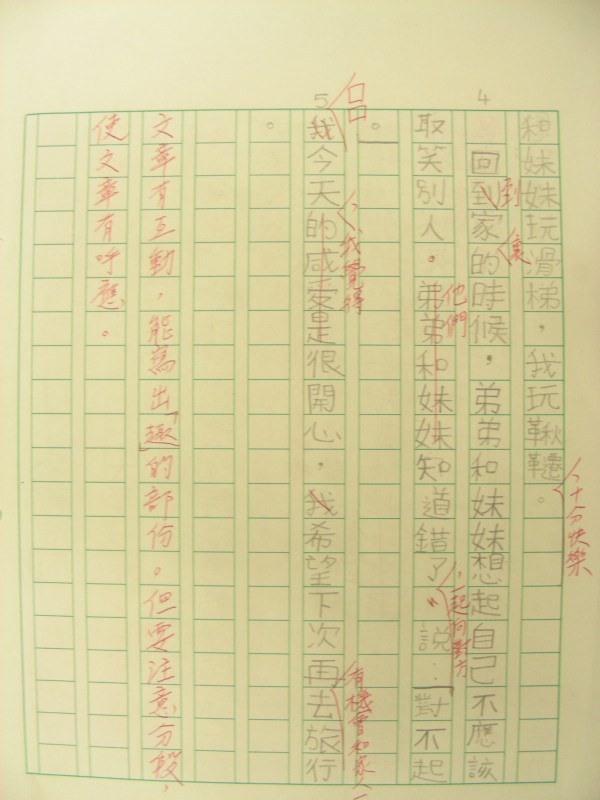 和妹妹玩滑梯，我玩鞦韆。
，十分快樂
4
回到家的時候，弟弟和妹妹想起自己不應該
到
裏
取笑別人。弟弟和妹妹知道錯了，說：「對不起
他們
，一起向對方
」。
5
我今天的感受是很開心，我希望下次再去旅行
，我覺得
有機會和家人一
。
文章有互動，能寫出「趣」的部份。但要注意分段，
使文章有呼應。